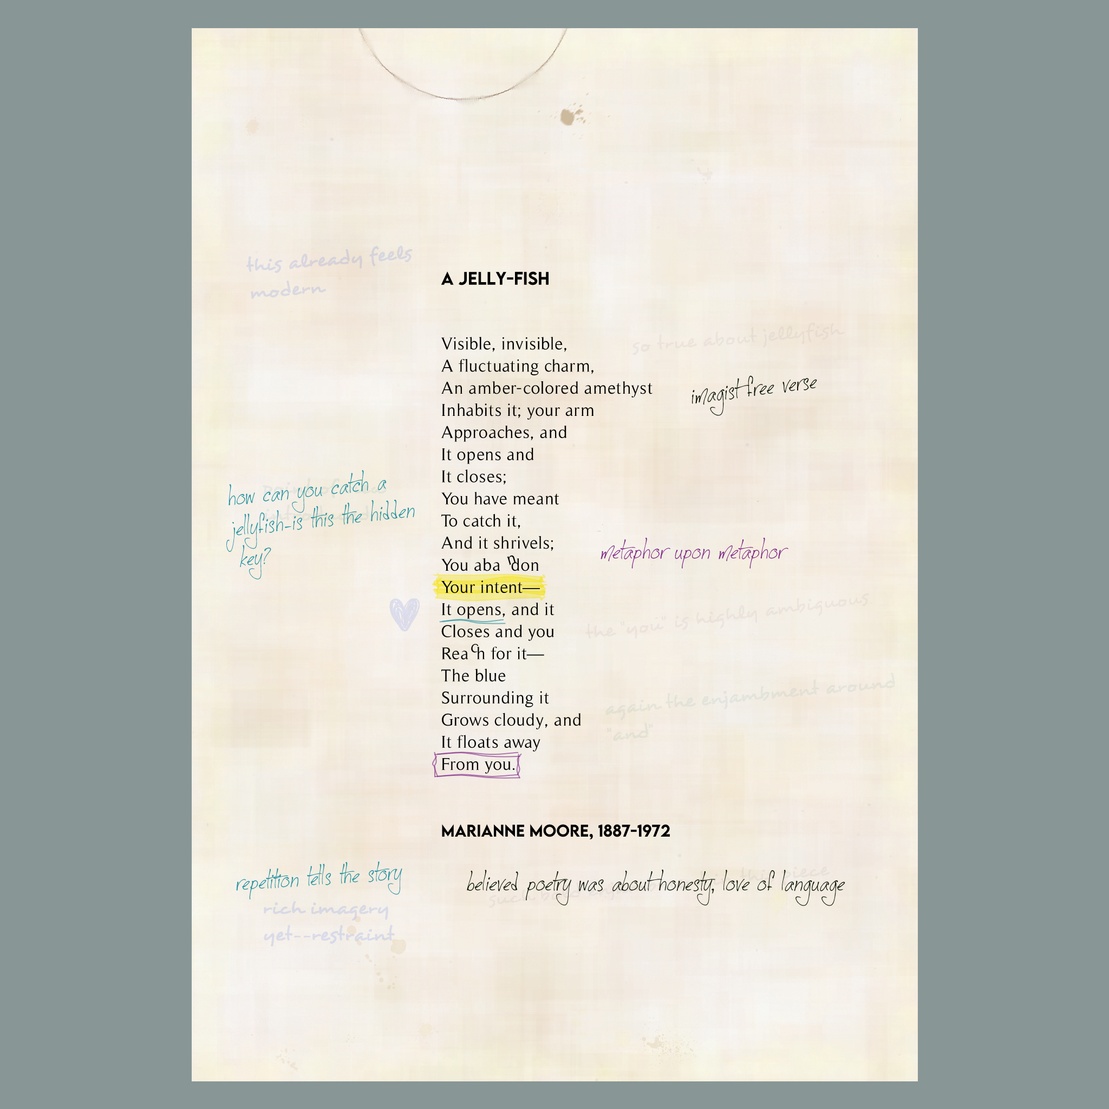 this already feels
modern
A JELLY-FISH
so true about jellyfish
Visible, invisible,
A fluctuating charm,
An amber-colored amethyst
imagist free verse
Inhabits it; your arm
Approaches, and
It opens and
It closes;
how can you catch a
jellyfish-is this the hidden
key?
You have meant
To catch it,
And it shrivels;
metaphor upon metaphor
You abandon
Your intent—
It opens, and it
the "you" is highly ambiguous
Closes and you
Reach for it—
The blue
Surrounding it
again the enjambment around
"and"
Grows cloudy, and
It floats away
From you.
MARIANNE MOORE, 1887-1972
repetition tells the story
believed poetry was about honesty, love of language
piece
rich imagery
yet--restraint